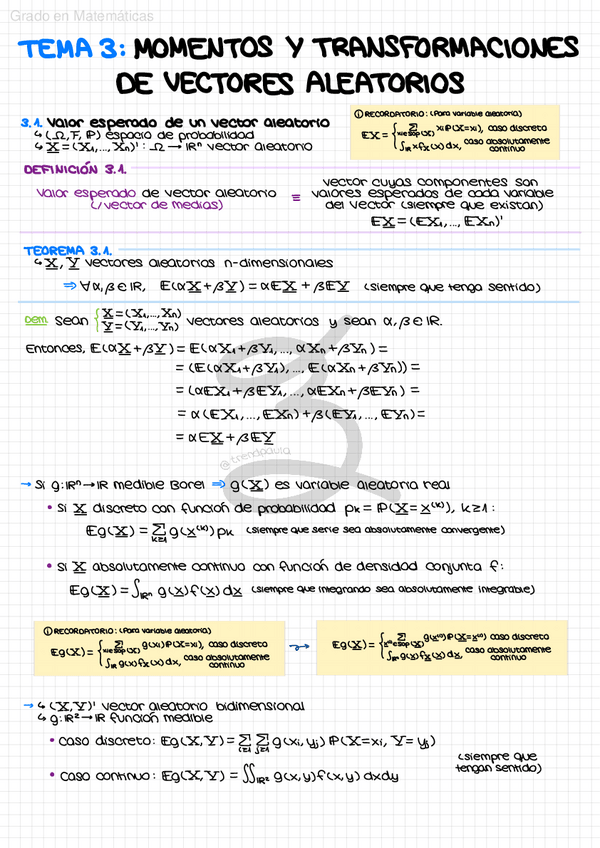 Grado en Matemáticas
TEMA 3: MOMENTOS Y TRANSFORMACIONES
DE VECTORES ALEATORIOS
3.1. Valor esperado de un vector aleatorio
↳ (Ω, F, P) espacio de probabilidad
↳ X = (X₁, ..., Xₙ)' : Ω → ℝⁿ vector aleatorio
① RECORDATORIO: (Para variable aleatoria)
EX = { ∑_{xᵢ∈Sop(X)} xᵢ P(X=xᵢ), caso discreto
∫_ℝ x f_X(x) dx, caso absolutamente continuo
DEFINICIÓN 3.1.
Valor esperado de vector aleatorio
(/vector de medias)
≡
vector cuyas componentes son
valores esperados de cada variable
del vector (siempre que existan)
EX = (EX₁, ..., EXₙ)'
TEOREMA 3.1.
↳ X, Y vectores aleatorios n-dimensionales
⇒ ∀α, β ∈ ℝ, E(αX + βY) = αEX + βEY (siempre que tenga sentido)
Dem Sean { X = (X₁, ..., Xₙ)
Y = (Y₁, ..., Yₙ) vectores aleatorios y sean α, β ∈ ℝ.
Entonces, E(αX + βY) = E(αX₁ + βY₁, ..., αXₙ + βYₙ) =
= (E(αX₁ + βY₁), ..., E(αXₙ + βYₙ)) =
= (αEX₁ + βEY₁, ..., αEXₙ + βEYₙ) =
= α(EX₁, ..., EXₙ) + β(EY₁, ..., EYₙ) =
= αEX + βEY
@trendpaula
→ Si g: ℝⁿ → ℝ medible Borel ⇒ g(X) es variable aleatoria real
• Si X discreto con función de probabilidad pₖ = P(X = x⁽ᵏ⁾), k≥1:
Eg(X) = ∑_{k≥1} g(x⁽ᵏ⁾) pₖ (siempre que serie sea absolutamente convergente)
• Si X absolutamente continuo con función de densidad conjunta f:
Eg(X) = ∫_ℝⁿ g(x) f(x) dx (siempre que integrando sea absolutamente integrable)
① RECORDATORIO: (Para variable aleatoria)
Eg(X) = { ∑_{xᵢ∈Sop(X)} g(xᵢ) P(X=xᵢ), caso discreto
∫_ℝ g(x) f_X(x) dx, caso absolutamente continuo
→
Eg(X) = { ∑_{x⁽ᵏ⁾∈Sop(X)} g(x⁽ᵏ⁾) P(X=x⁽ᵏ⁾), caso discreto
∫_ℝⁿ g(x) f_X(x) dx, caso absolutamente continuo
→ ↳ (X,Y)' vector aleatorio bidimensional
↳ g: ℝ² → ℝ función medible
• caso discreto: Eg(X,Y) = ∑_{i≥1} ∑_{j≥1} g(xᵢ, yⱼ) P(X=xᵢ, Y=yⱼ)
• caso continuo: Eg(X,Y) = ∬_ℝ² g(x,y) f(x,y) dxdy
(siempre que
tengan sentido)